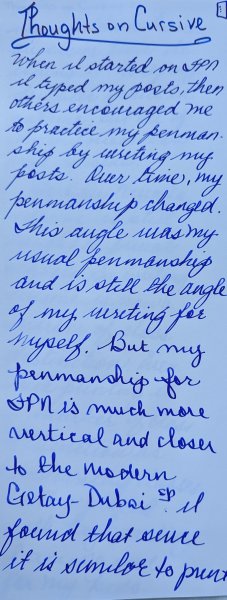 Thoughts on Cursive
When I started on FPN
I typed my posts, then
others encouraged me
to practice my penman-
ship by writing my
posts. Over time, my
penmanship changed.
This angle was my
usual penmanship
and is still the angle
of my writing for
myself. But my
penmanship for
FPN is much more
vertical and closer
to the modern
Getty-Dubai sp. I
found that since
it is similar to print